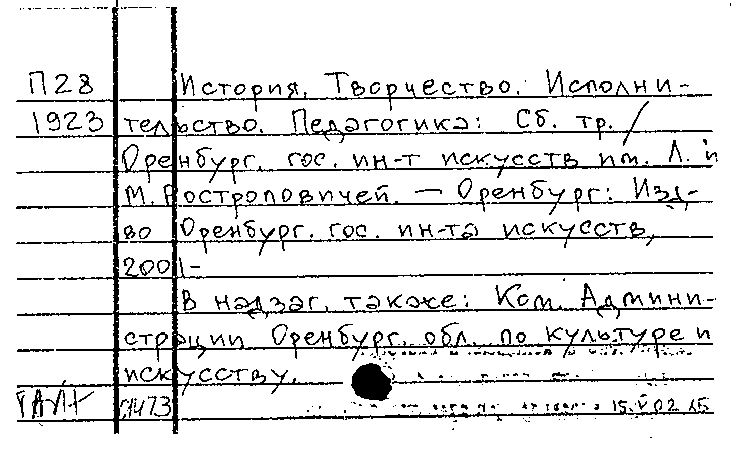 П28 История. Творчество. Исполни-
1923 тельство. Педагогика: Сб. тр. /
Оренбург. гос. ин-т искусств им. Л. и
М. Ростроповичей. — Оренбург: Изд-
во Оренбург. гос. ин-та искусств,
2001-
В надзаг. также: Ком. Админи-
страции Оренбург. обл. по культуре и
искусству.